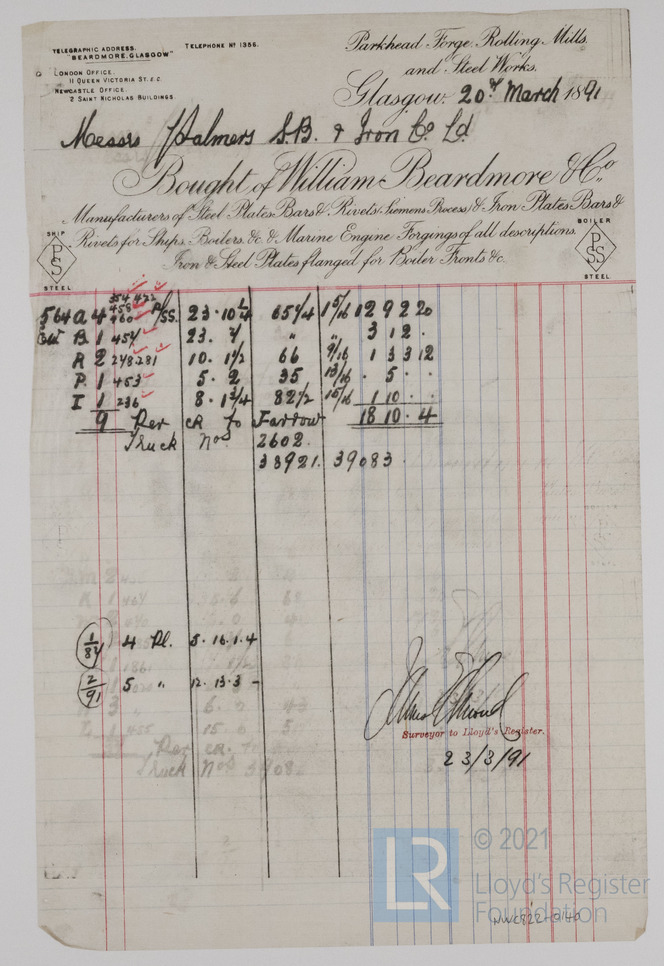 TELEGRAPHIC ADDRESS. TELEPHONE Nº 1356.
"BEARDMORE, GLASGOW"
LONDON OFFICE.
11 QUEEN VICTORIA ST. E.C.
NEWCASTLE OFFICE.
2 SAINT NICHOLAS BUILDINGS
Parkhead Forge, Rolling Mills,
and Steel Works.
Glasgow. 20th March 1891
Messrs Palmers S.B. & Iron Co Ld
Bought of William Beardmore & Co.
Manufacturers of Steel Plates Bars & Rivets (Siemens Process) & Iron Plates Bars &
Rivets for Ships, Boilers, &c. & Marine Engine Forgings of all descriptions.
Iron & Steel Plates flanged for Boiler Fronts &c.
SHIP PSS STEEL
BOILER PSS STEEL
354 422
458
564 A 4 460 P/SS. 23 . 10 1/4 65 1/4 15/16 12 9 2 20
B 1 454 23 . 4 " " 3 12 .
R 2 278.281 10 . 1 1/2 66 9/16 1 3 3 12
P 1 453 5 . 2 35 13/16 . 5 . .
I 1 236 8 . 1 3/4 82 1/2 15/16 1 10 . .
9 Per CR to Jarrow 18 10 . 4
Truck Nos 2602.
38921. 39083.
1/84 4 Pl. 5 . 16 . 1 . 4
2/91 5 " 12 . 13 . 3 -
Surveyor to Lloyd's Register.
23/3/91
Per CR.
Truck Nos
LR © 2021
Lloyd's Register
Foundation